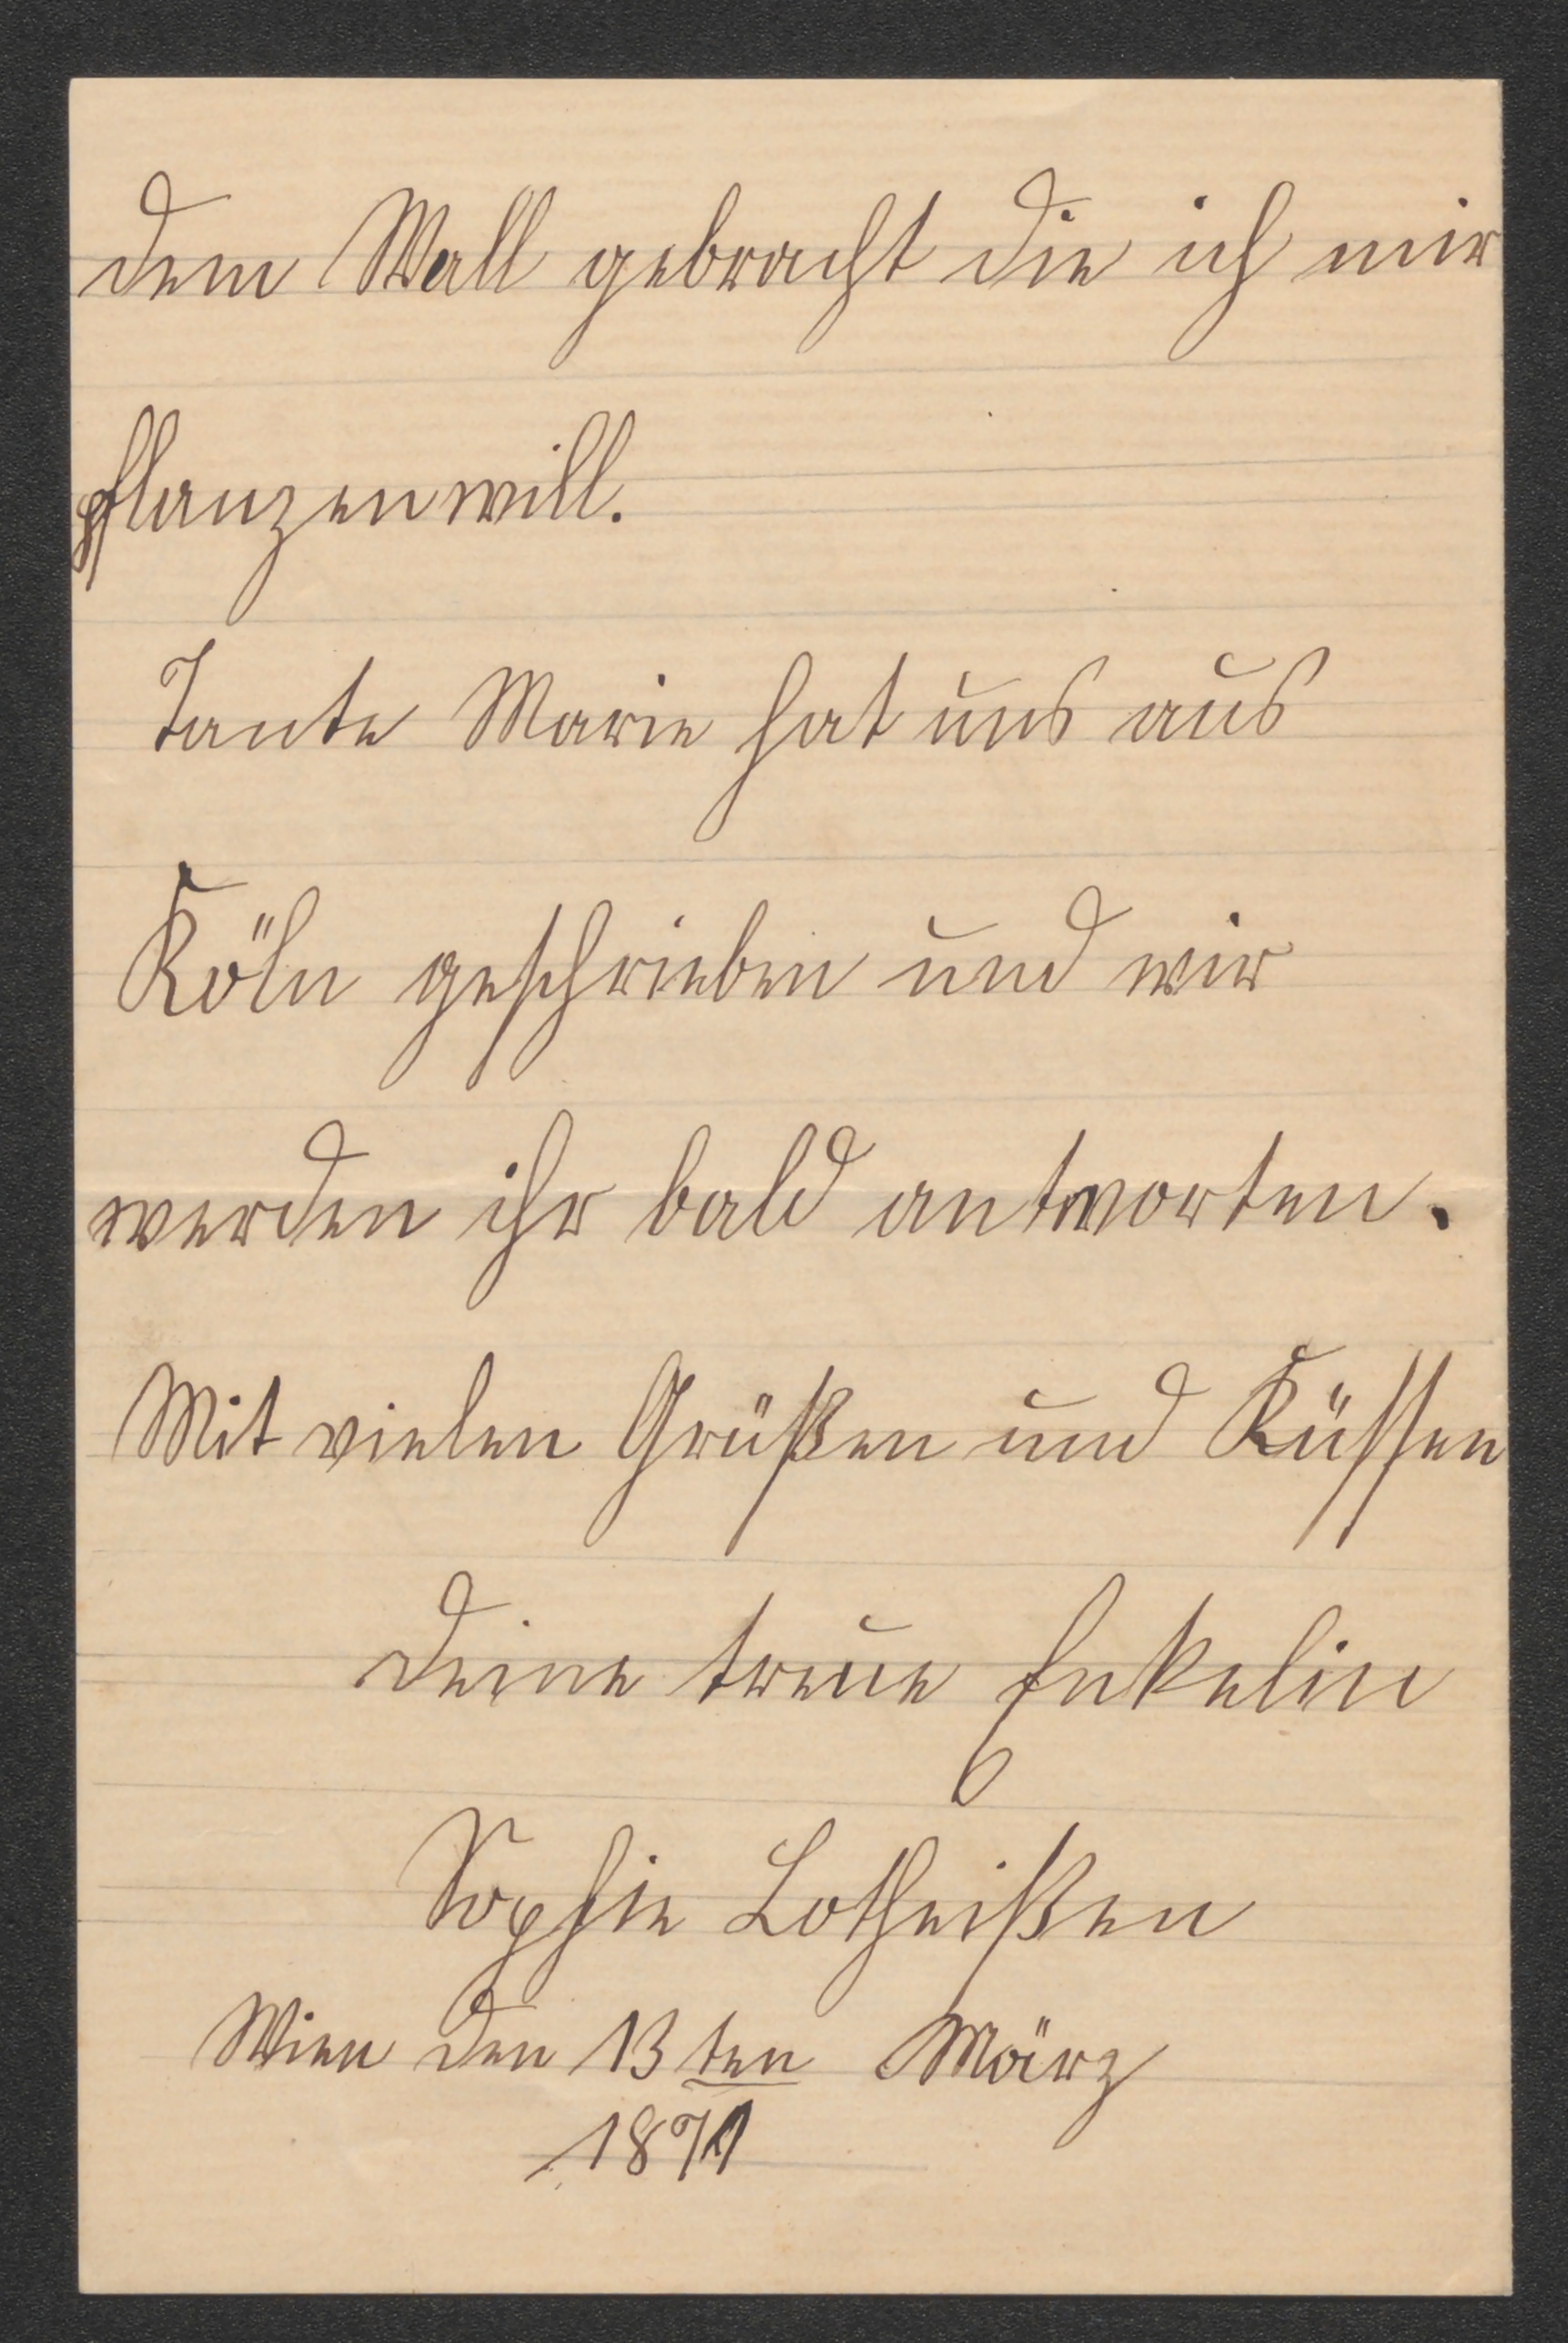 dem Wall gebracht die ich mir
pflanzen will.
Tante Marie hat uns aus
Köln geschrieben und wir
werden ihr bald antworten.
Mit vielen Grüßen und Küssen
Deine treue Enkelin
Sophie Lotheißen
Wien den 13ten März
1871